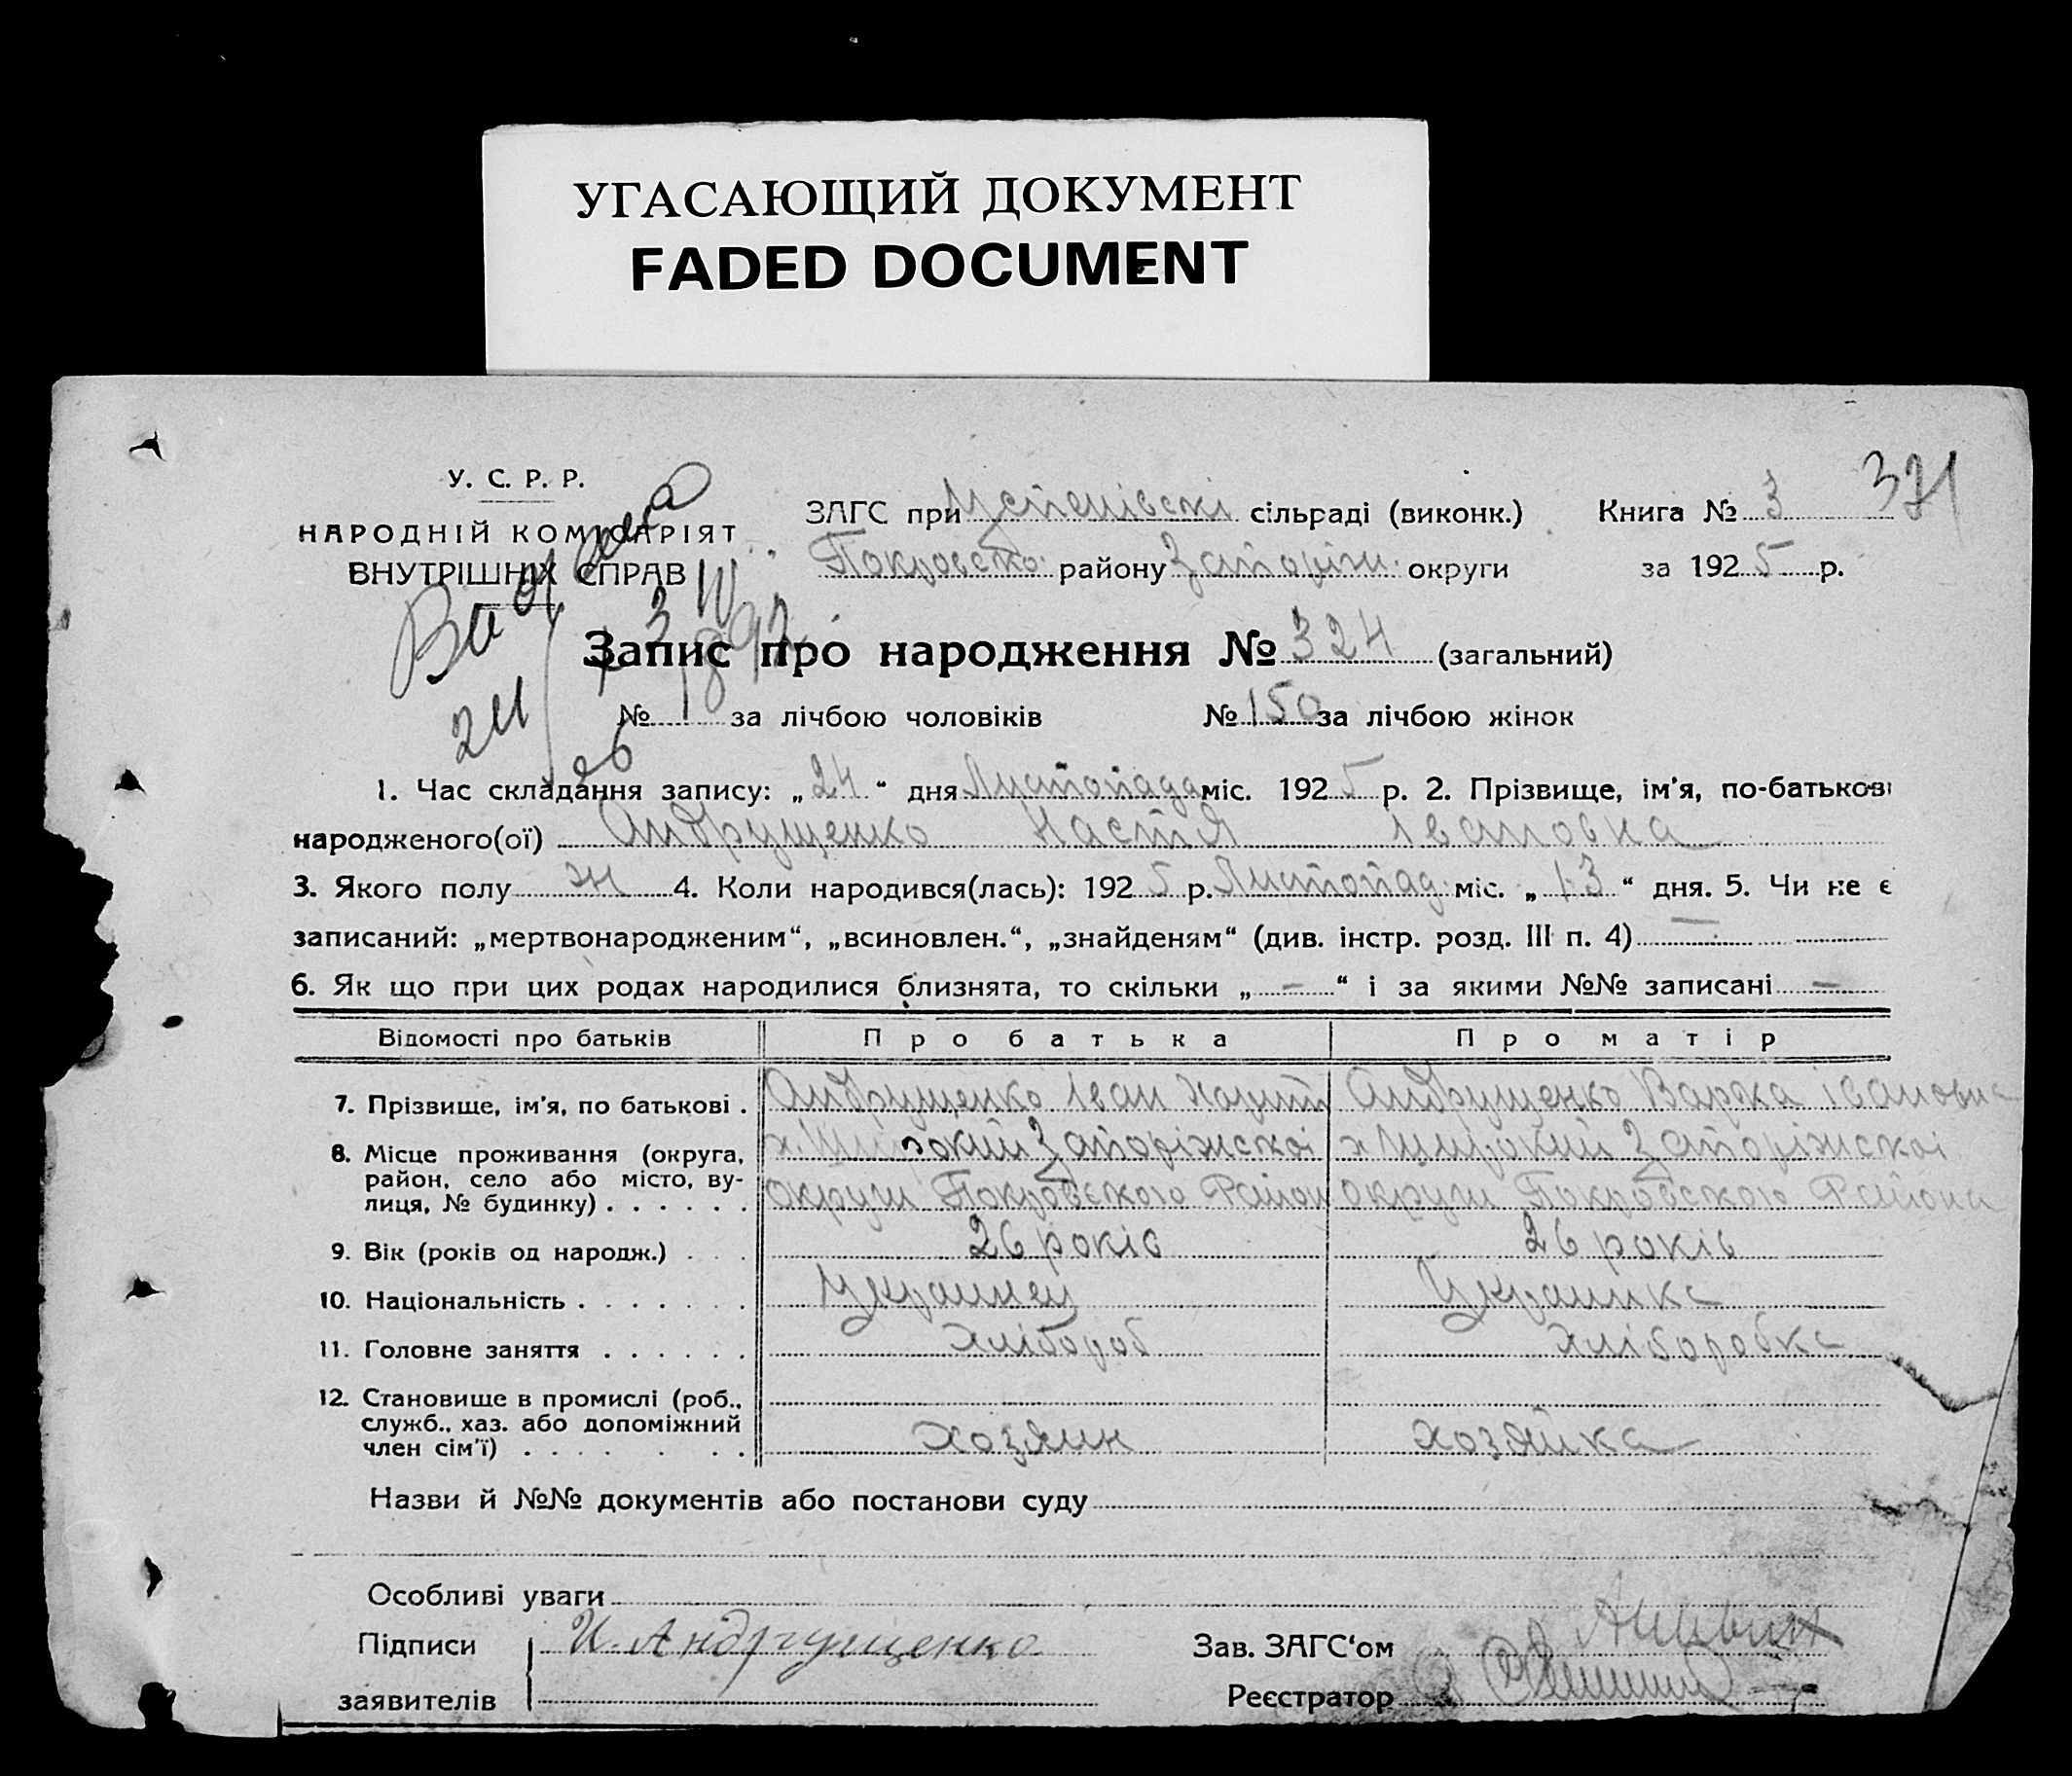 УГАСАЮЩИЙ ДОКУМЕНТ
FADED DOCUMENT
У. С. Р. Р.
НАРОДНІЙ КОМІСАРІЯТ
ВНУТРІШНІХ СПРАВ
ЗАГС при Успенівскі сільраді (виконк.) Книга № 3 371
Покровско району Запоріж. округи за 1925 р.
Запис про народження № 324 (загальний)
№ за лічбою чоловіків № 150 за лічбою жінок
24
26
1. Час складання запису: „24“ дня Листопада міс. 1925 р. 2. Прізвище, ім'я, по-батькові
народженого(ої) Андрущенко Настя Івановна
3. Якого полу ж 4. Коли народився(лась): 1925 р. Листопад міс. „13“ дня. 5. Чи не є
записаний: „мертвонародженим“, „всиновлен.“, „знайденям“ (див. інстр. розд. III п. 4) —
6. Як що при цих родах народилися близнята, то скільки „ – “ і за якими №№ записані –
Відомості про батьків Про батька Про матір
7. Прізвище, ім'я, по батькові . Андрущенко Іван Андрущенко Варка івановна
8. Місце проживання (округа, х. Широкий Запоріжскоі х Широкий Запоріжскоі
район, село або місто, ву-
лиця, № будинку) . . . . . . округи Покровского Район округи Покровского Района
9. Вік (років од народж.) . . . 26 років 26 років
10. Національність . . . . . . . Украинец Украинка
11. Головне заняття . . . . . . хлібороб хліборобка
12. Становище в промислі (роб.,
служб., хаз. або допоміжний
член сім'ї) . . . . . . . . хозяин хозяйка
Назви й №№ документів або постанови суду
Особливі уваги
Підписи И. Андрущенко Зав. ЗАГС‘ом
заявителів Реєстратор